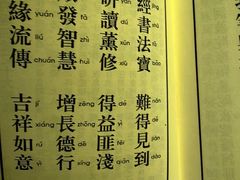 經書法寶
研讀薰修
dú xūn xiū
發智慧
fā zhì huì
緣流傳
yuán liú chuán
難得見到
得益匪淺
dé yì fěi qiǎn
增長德行
zēng zhǎng dé xíng
吉祥如意
jí xiáng rú yì